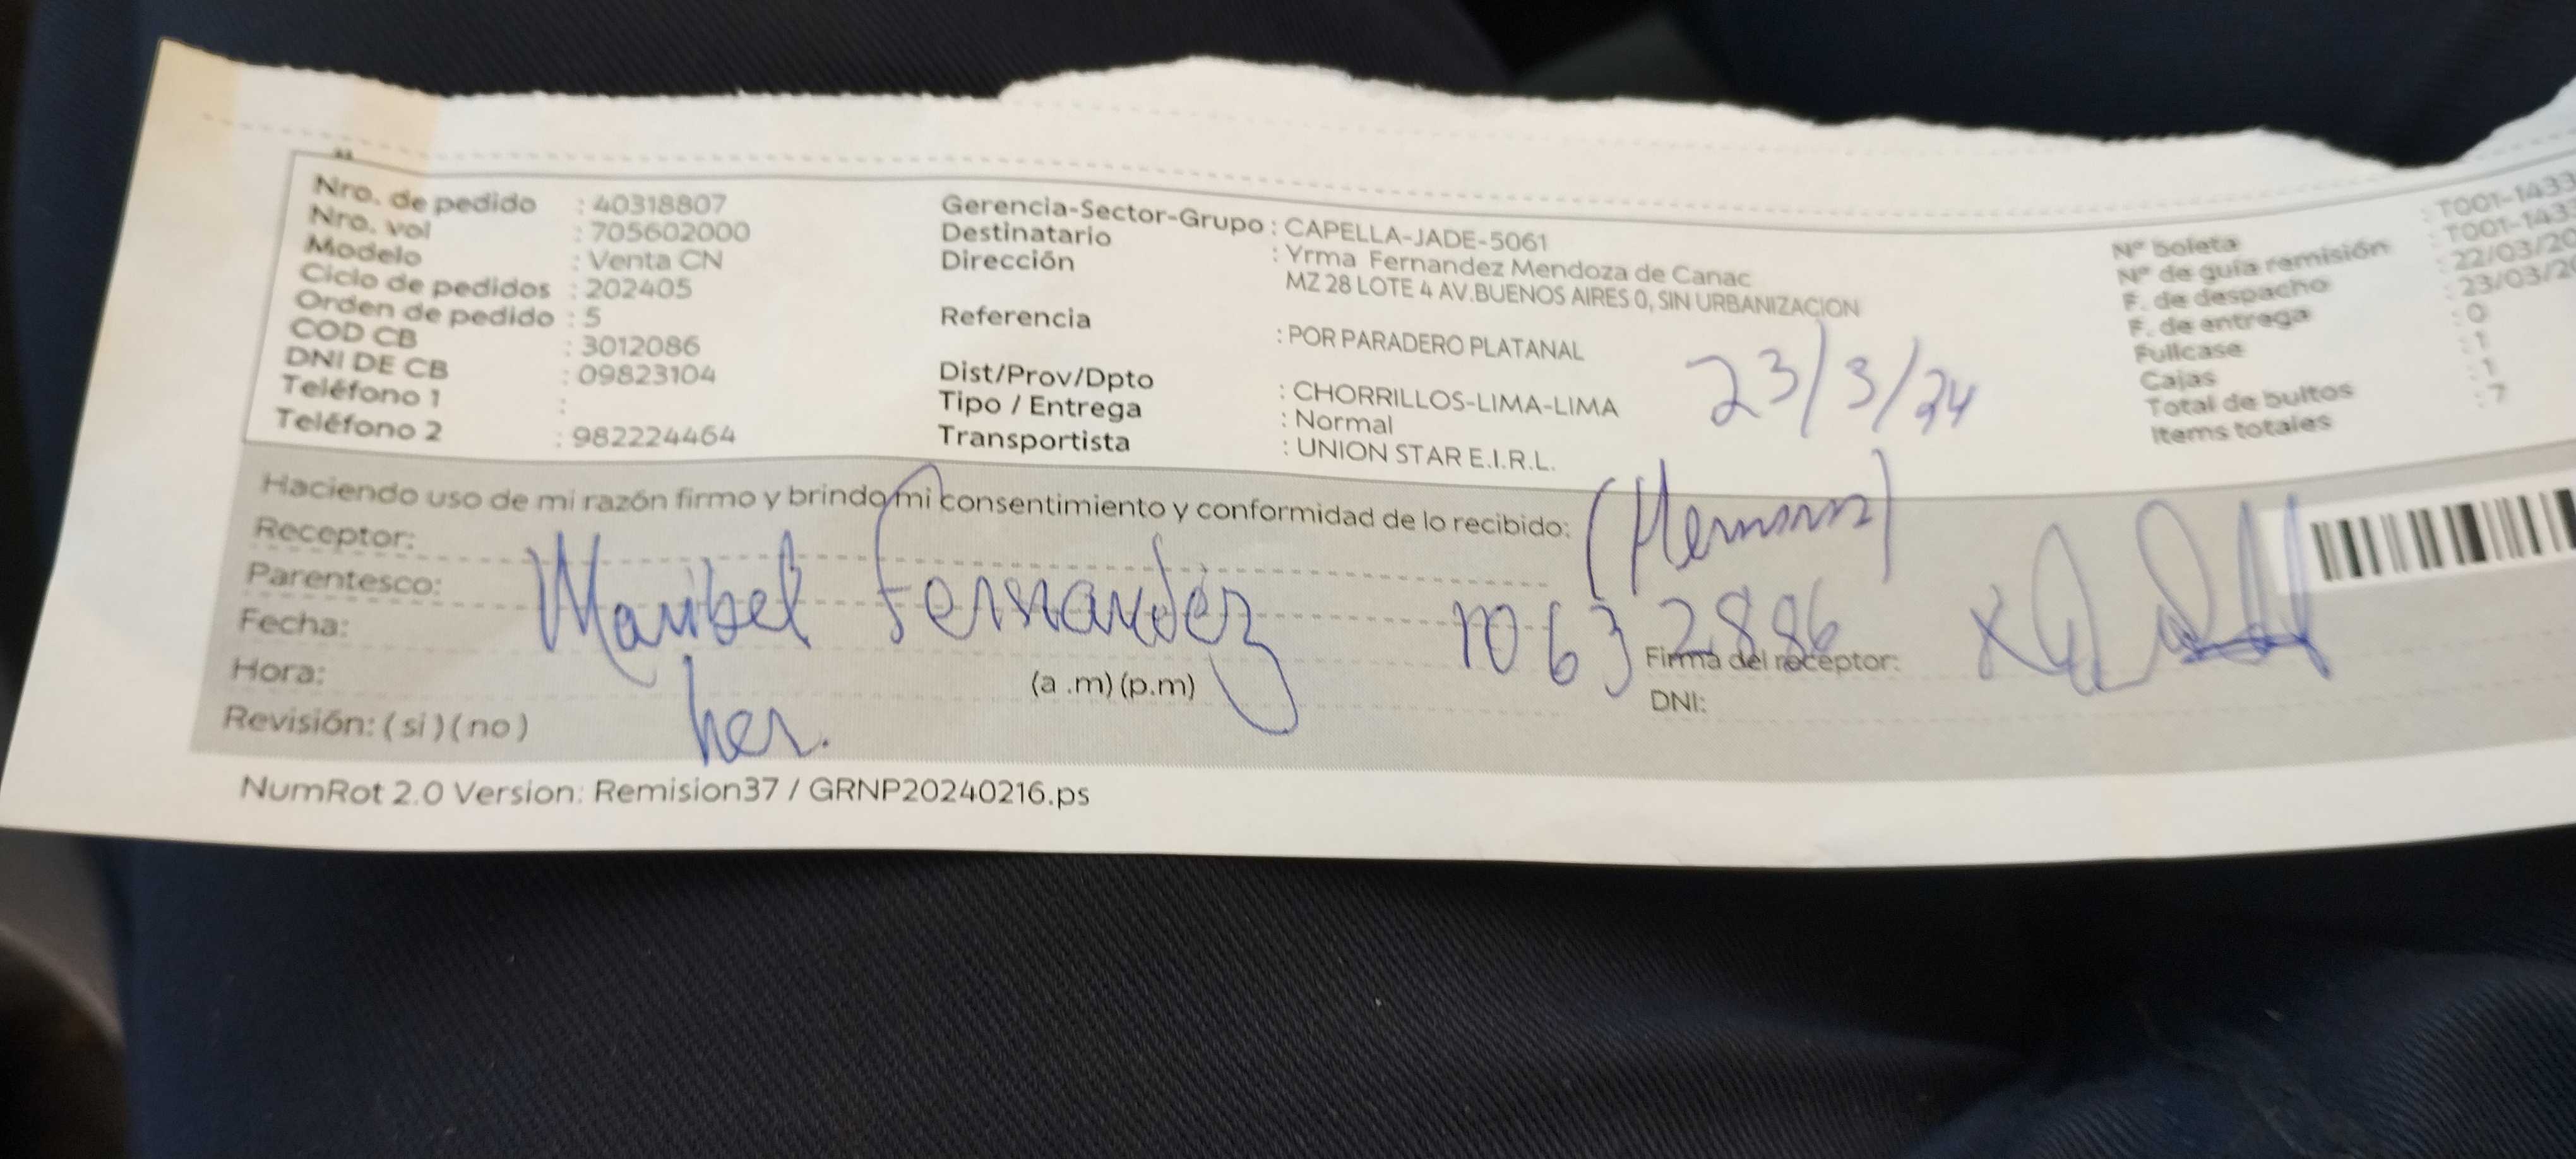 Nro. de pedido : 40318807
Nro. vol : 705602000
Modelo : Venta CN
Ciclo de pedidos : 202405
Orden de pedido : 5
COD CB : 3012086
DNI DE CB : 09823104
Teléfono 1 :
Teléfono 2 : 982224464
Gerencia-Sector-Grupo : CAPELLA-JADE-5061
Destinatario : Yrma Fernandez Mendoza de Canac
Dirección MZ 28 LOTE 4 AV.BUENOS AIRES 0, SIN URBANIZACION
Referencia : POR PARADERO PLATANAL
Dist/Prov/Dpto : CHORRILLOS-LIMA-LIMA
Tipo / Entrega : Normal
Transportista : UNION STAR E.I.R.L.
23/3/24
Nº boleta : T001-1433
Nº de guía remisión : T001-143
F. de despacho : 22/03/20
F. de entrega : 23/03/20
Fullcase : 0
Cajas : 1
Total de bultos : 1
Items totales : 7
Haciendo uso de mi razón firmo y brindo mi consentimiento y conformidad de lo recibido:
(Hermana)
Receptor:
Parentesco:
Fecha:
Maribel Fernandez 10632886
Hora: (a .m) (p.m)
her.
Revisión: ( si ) ( no )
Firma del receptor: x
DNI:
NumRot 2.0 Version: Remision37 / GRNP20240216.ps